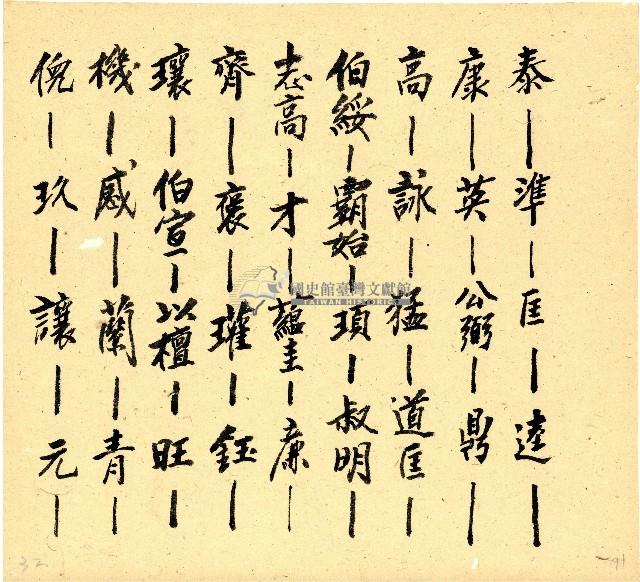 泰｜準｜匡｜逵｜
康｜英｜公弼｜鼎｜
高｜詠｜猛｜道匡｜
伯綏｜霸始｜項｜叔明｜
志高｜才｜蘊圭｜廉｜
齊｜褒｜瓘｜鈺｜
瓌｜伯宣｜以檀｜旺｜
機｜感｜蘭｜青｜
倪｜玖｜讓｜元｜
國史館臺灣文獻館
TAIWAN HISTORICA
32
91